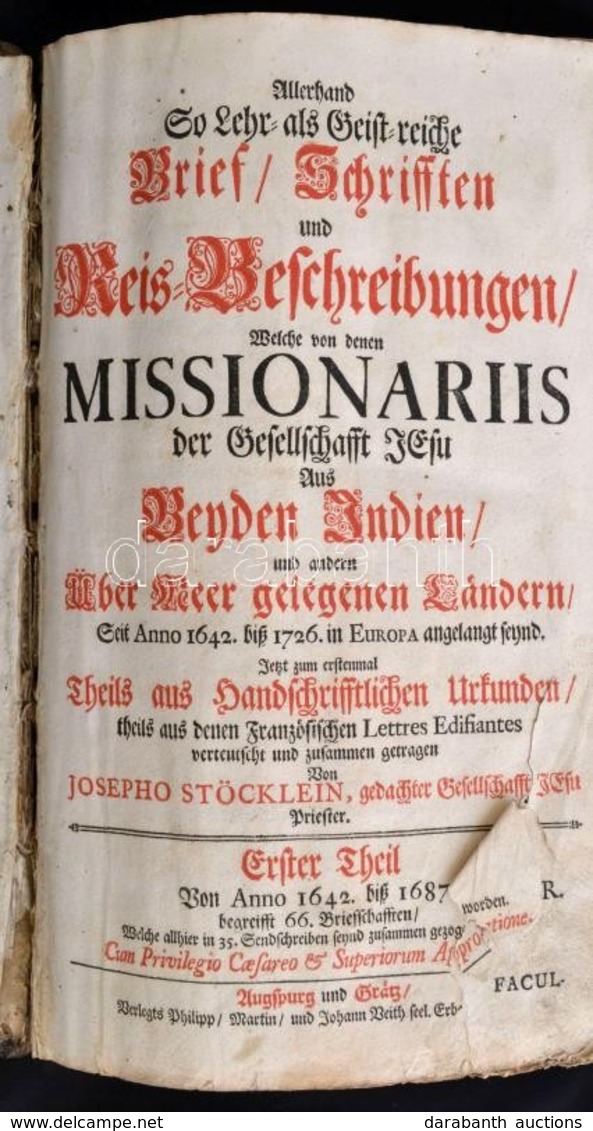 Allerhand
So Lehr- als Geist-reiche
Brief/ Schrifften
und
Reis-Beschreibungen/
Welche von denen
MISSIONARIIS
der Gesellschafft JEsu
Aus
Beyden Indien/
und andern
Über Meer gelegenen Ländern/
Seit Anno 1642. biß 1726. in EUROPA angelangt seynd.
Jetzt zum erstenmal
Theils aus Handschrifftlichen Urkunden/
theils aus denen Französischen Lettres Edifiantes
verteutscht und zusammen getragen
Von
JOSEPHO STÖCKLEIN, gedachter Gesellschafft JEsu
Priester.
Erster Theil
Von Anno 1642. biß 1687
begreifft 66. Briefschafften/
Welche allhier in 35. Sendschreiben seynd zusammen gezog
worden.
R.
Cum Privilegio Cæsareo & Superiorum Approbatione.
FACUL-
Augspurg und Grätz/
Verlegts Philipp/ Martin/ und Johann Veith seel. Erb-
darabanth
darabanth auctions